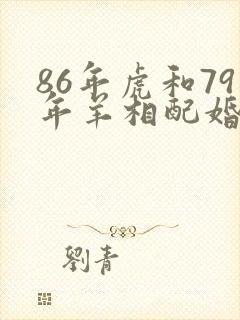 86年虎和79
年羊相配婚
劉青